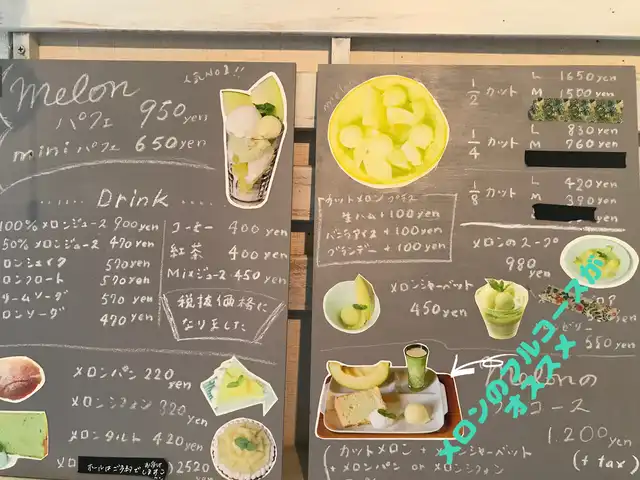 melon
人気No.1!!
パフェ 950yen
miniパフェ 650yen
Drink
100%メロンジュース 900yen
50%メロンジュース 470yen
ロンシェイク 570yen
ロンフロート 570yen
リームソーダ 570yen
ロンソーダ 470yen
コーヒー 400yen
紅茶 400yen
Mixジュース 450yen
税抜価格に
なりました
メロンパン 220yen
メロンシフォン 320yen
メロンタルト 420yen
2520yen
melon
1/2 カット L 1650yen
M 1500yen
1/4 カット L 830yen
M 760yen
1/8 カット L 420yen
M 390yen
yen
カットメロンプラス
生ハム+100yen
バニラアイス+100yen
ブランデー+100yen
メロンのスープ
980yen
メロンシャーベット
450yen
ゼリー
550yen
メロンのフルコースが
オススメ
Melonの
コース
1,200yen
(+tax)
(カットメロン+メロンシャーベット
+メロンパン or メロンシフォン